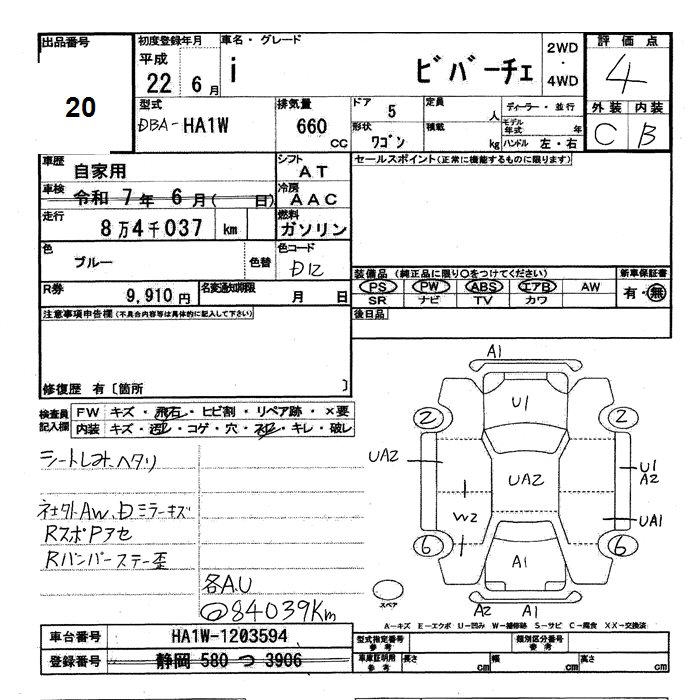 出品番号
20
初度登録年月
平成
22年 6月
車名・グレード
i ビバーチェ
2WD
・
4WD
評価点
4
外装 内装
C B
型式
DBA-HA1W
排気量
660
CC
ドア 5
形状 ワゴン
定員 人
積載 kg
ディーラー・並行
モデル年式 年
ハンドル 左・右
車歴
自家用
シフト
AT
セールスポイント(正常に機能するものに限ります)
車検
令和 7年 6月( 日)
冷房
AAC
走行
8万4千037 km
燃料
ガソリン
色
ブルー
色替
色コード
D12
装備品 (純正品に限り○をつけてください)
新車保証書
PS PW ABS エアB AW
有・無
SR ナビ TV カワ
R券
9,910円
名変通知期限
月 日
後日品
注意事項申告欄(不具合内容等は具体的に記入して下さい)
修復歴 有〔箇所 〕
検査員
記入欄
FW キズ・飛石・ヒビ割・リペア跡・×要
内装 キズ・汚レ・コゲ・穴・スレ・キレ・破レ
シートしみ、ヘタリ
社外AW、Dミラーキズ
RスポPアセ
Rバンパーステー歪
各A.U
@84039Km
A1
U1
2
2
UA2
UA2
U1
A2
W2
UA1
6
6
A1
スペア
A2
A1
A-キズ E-エクボ U-凹み W-補修跡 S-サビ C-腐食 XX-交換済
車台番号
HA1W-1203594
登録番号
静岡 580 つ 3906
型式指定番号
参考
類別区分番号
参考
車庫証明用
参考
長さ cm
幅 cm
高さ cm